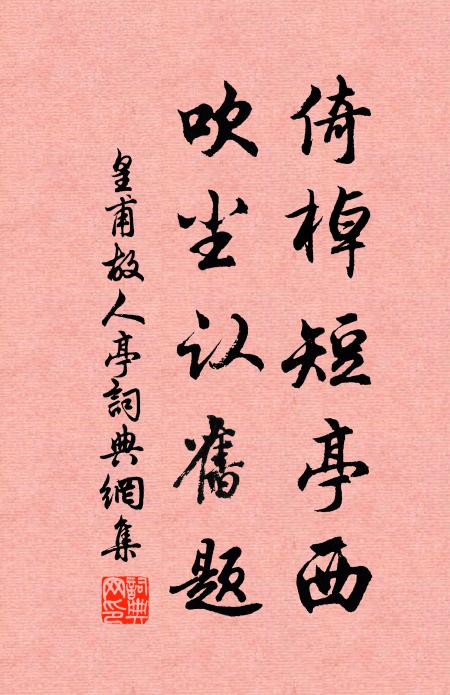 倚棹短亭西
吹尘认舊题
皇甫故人亭詞典網集
詞典网印